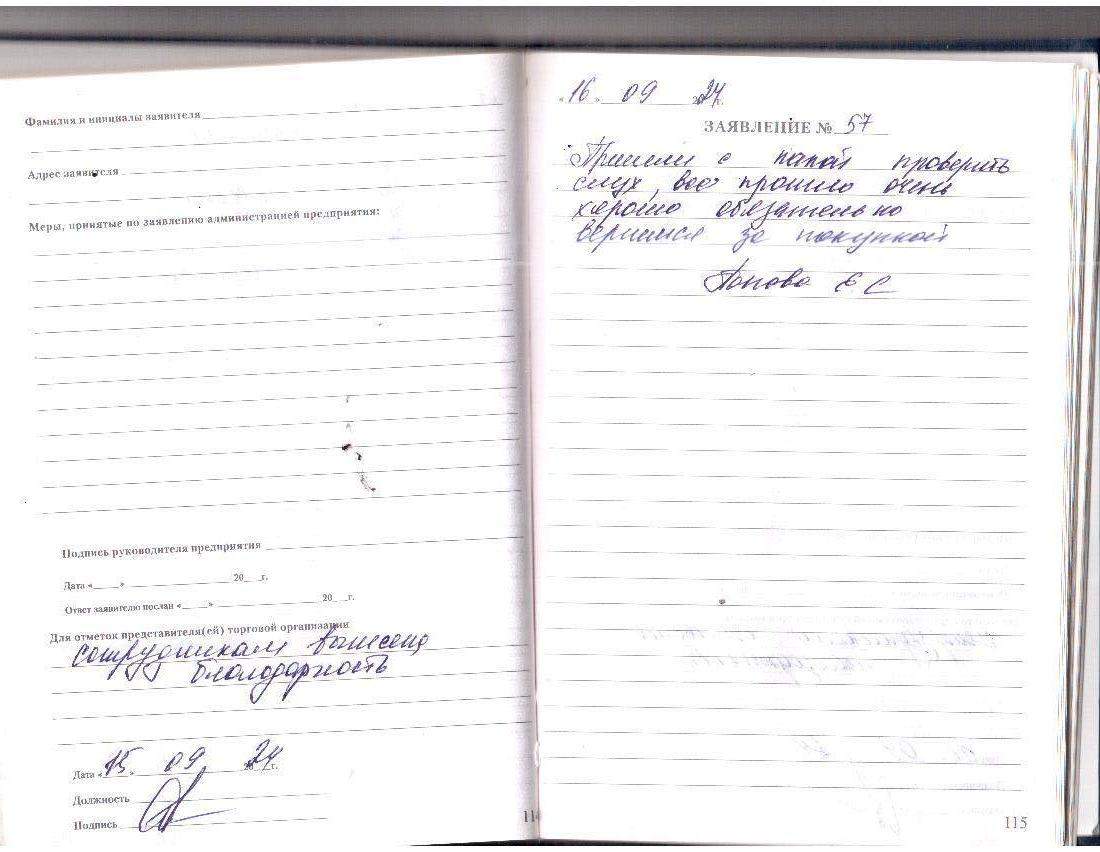 Фамилия и инициалы заявителя
Адрес заявителя
Меры, принятые по заявлению администрацией предприятия:
Подпись руководителя предприятия
Дата «___» ___ 20__г.
Ответ заявителю послан «___» ___ 20__г.
Для отметок представителя(ей) торговой организации
сотрудникам вынесена
благодарность
Дата «15» 09 2024г.
Должность
Подпись
114
«16» 09 2024г.
ЗАЯВЛЕНИЕ № 57
Пришли с папой проверить
слух, всё прошло очень
хорошо обязательно
вернемся за покупкой
Попова Е С
115